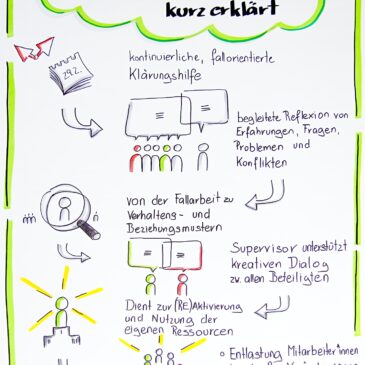 kurz erklärt
29.2.
kontinuierliche, fallorientierte
Klärungshilfe
begleitete Reflexion von
Erfahrungen, Fragen,
Problemen und
Konflikten
von der Fallarbeit zu
Verhaltens- und
Beziehungsmustern
Supervisor unterstützt
kreativen Dialog
zu allen Beteiligten
Dient zur (RE)Aktivierung
und Nutzung der
eigenen Ressourcen
Entlastung Mitarbeiter*innen